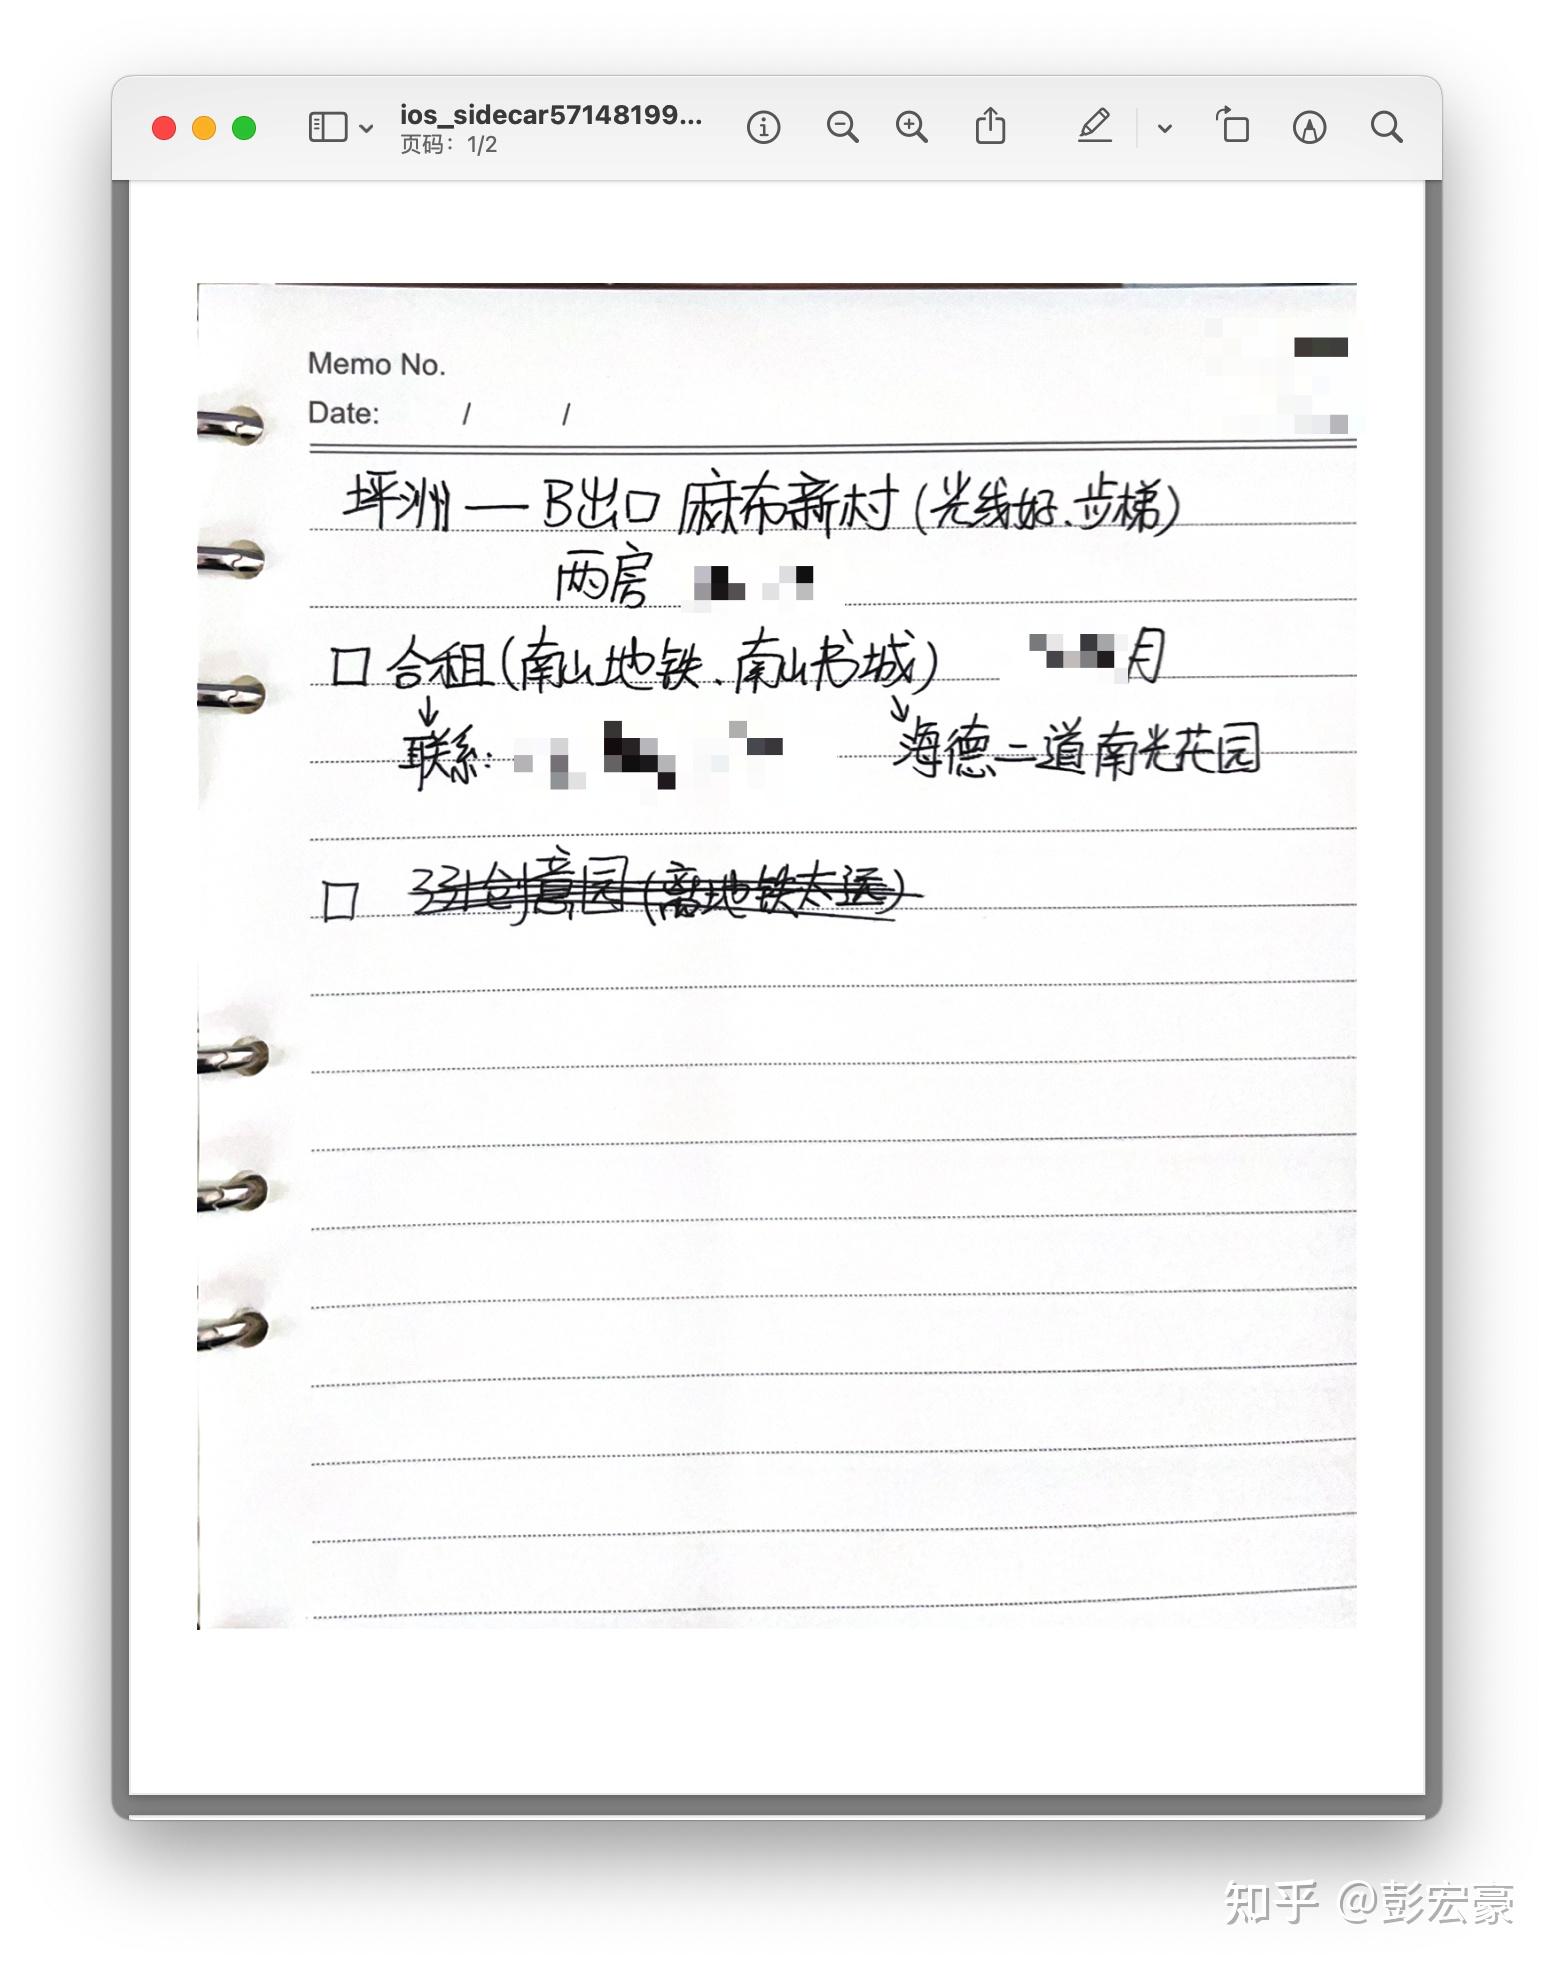 ios_sidecar57148199...
页码：1/2
Memo No.
Date: / /
坪洲 — B出口 麻布新村 (光线好、步梯)
两房
□ 合租 (南山地铁、南山书城) 月
↓ ↘
联系: 海德二道南光花园
□ 33创意园 (离地铁太远)
知乎 @彭宏豪